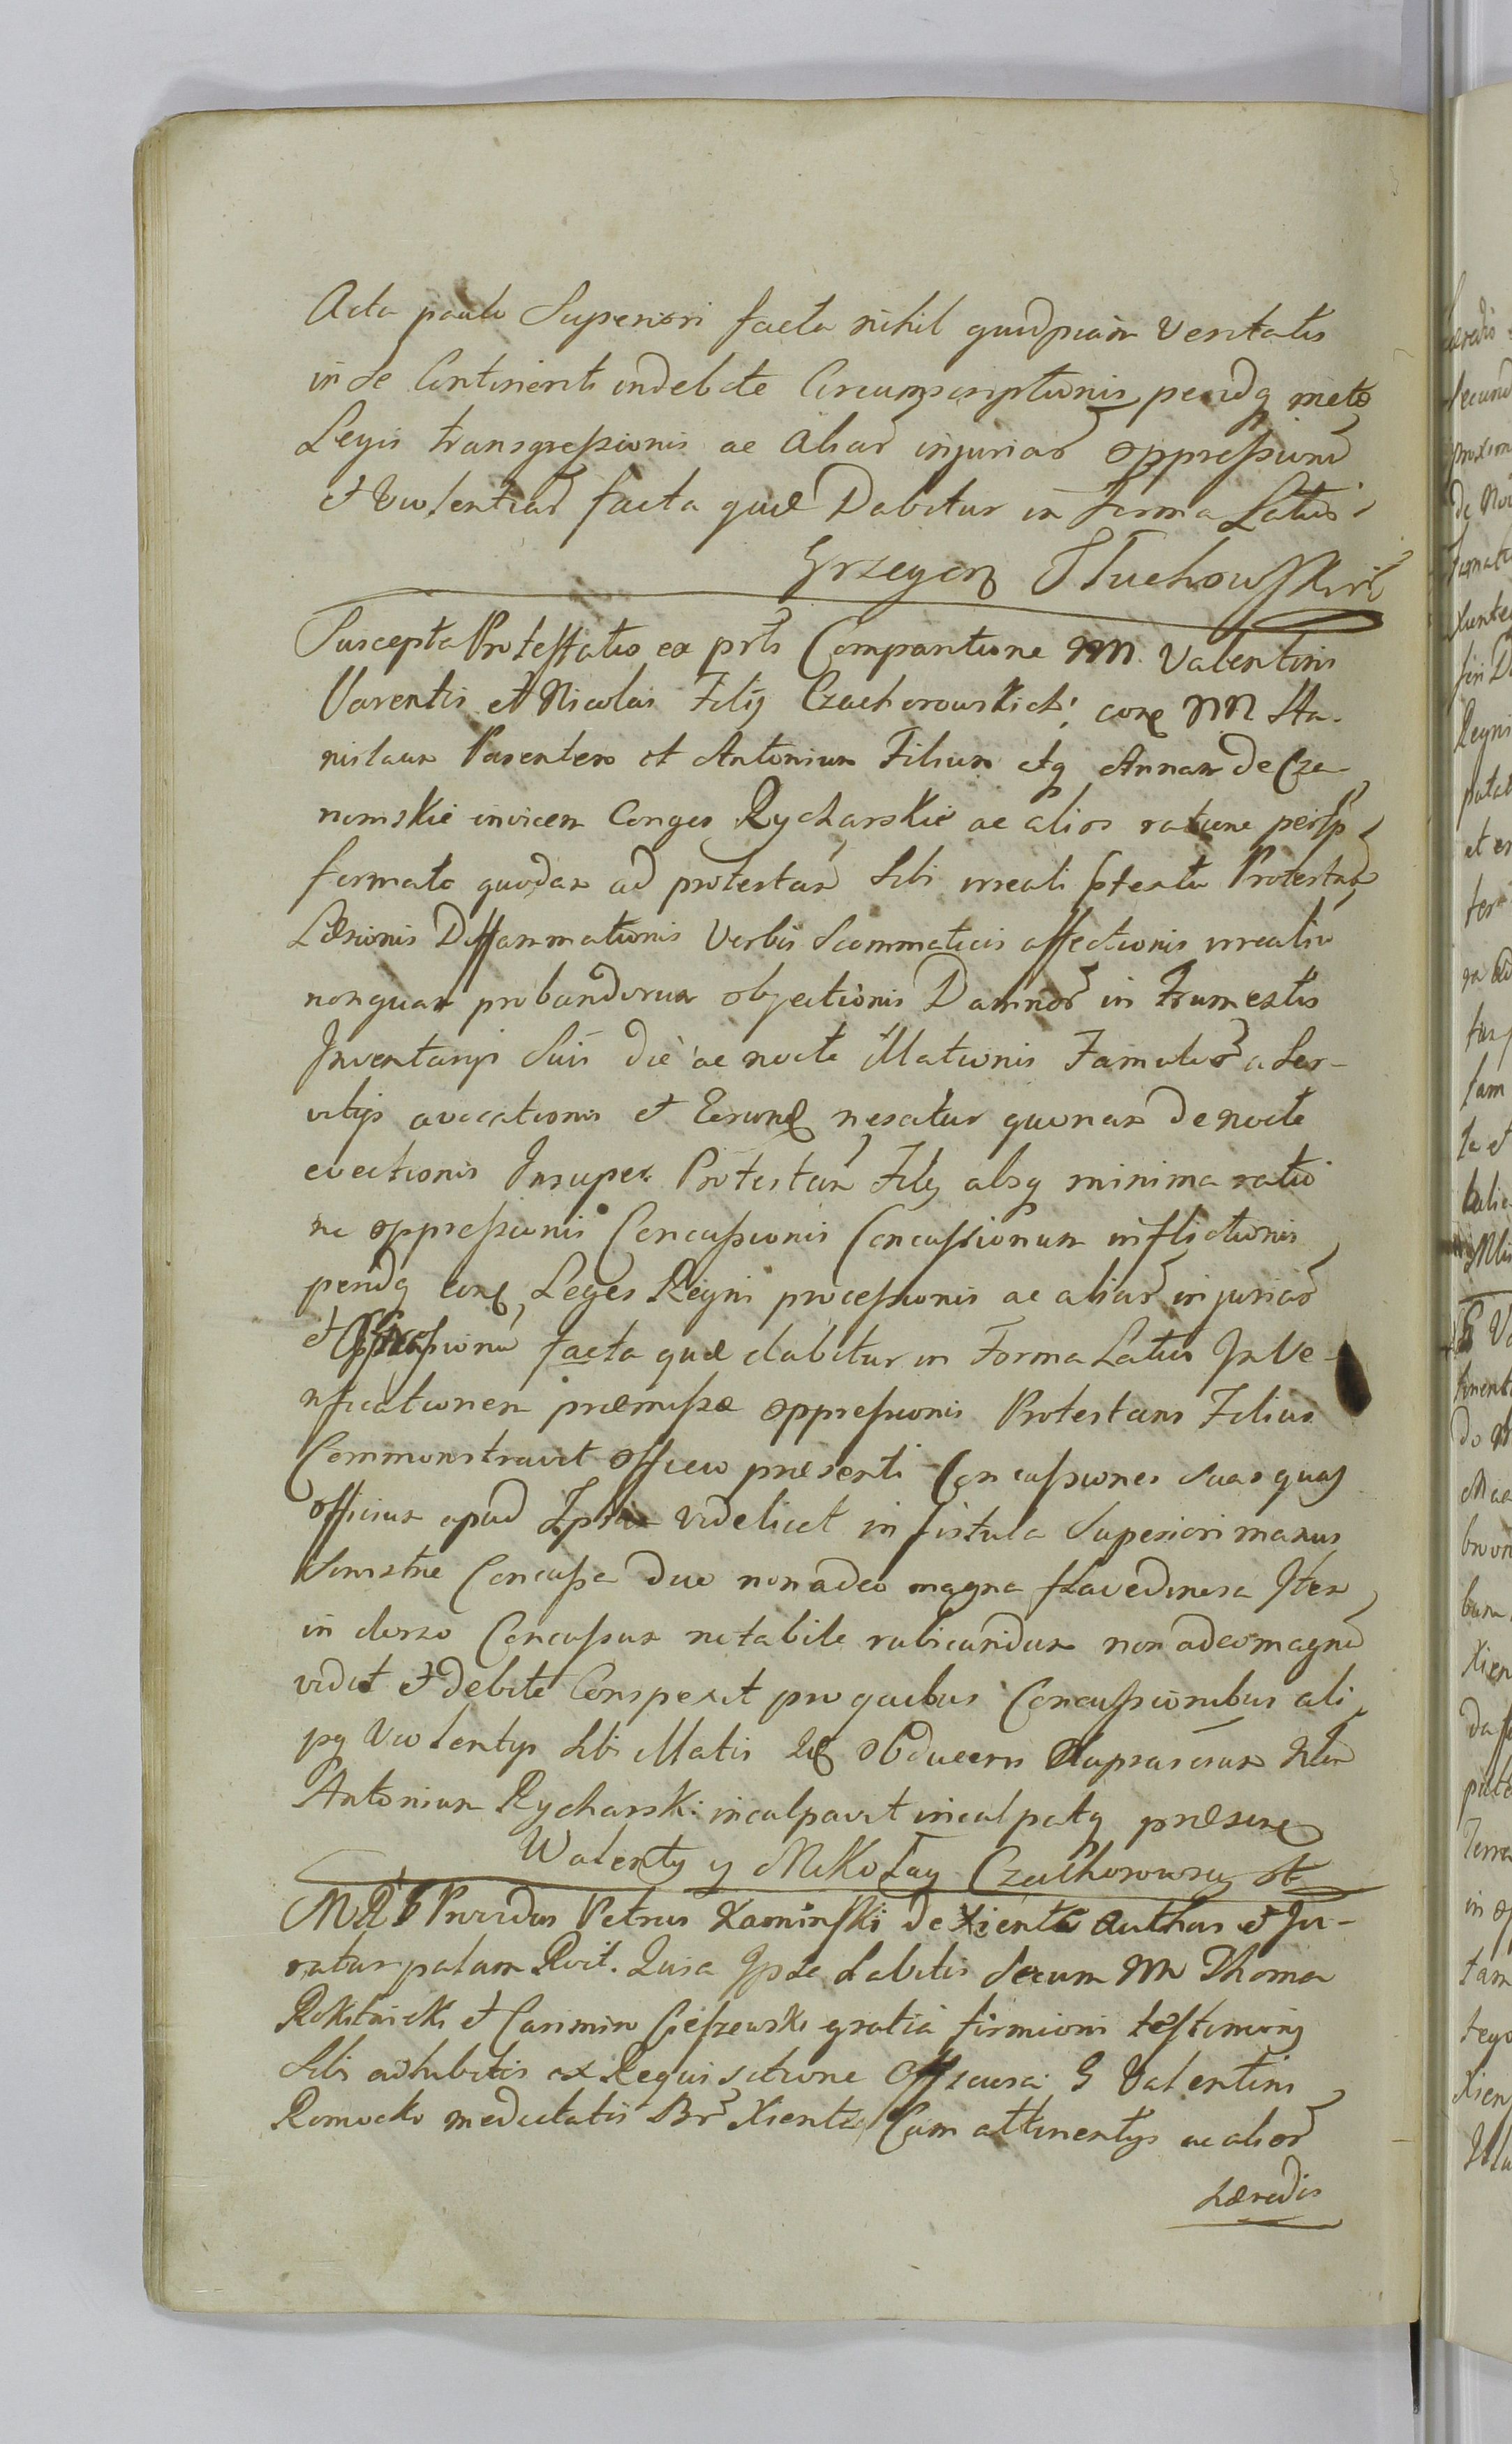 Acta paulo Superiori facta nihil quidpiam Veritatis
in se Continenti indebite Circumscriptionis pendq meto
Legis transgressionis ac aliar injuriar oppressionu
et Violentiar facta quæ Dabitur in Forma Latiõ
Grzegorz Tłuchowski
Suscepta Protestatio ex prts Comparitione MM. Valentini
Parentis et Nicolai Filij Czachorowskich; coñ MM Sta-
nislaum Parentem et Antonium Filium atq Annam de Cze-
nomskie invicem Conges Rycharskie ac alios ratione
formato quodam ad protestan Sibi irreali Protestno
Læsionis Diffammationis Verbis Scommaticis affectionis irrealiu
nonquam probandorum objectionis Damnor in Frumentis
Inventarij Suis die ac nocte illationis Famulor a Ser-
vitijs avocationis et Eorund nesciatur quonam de nocte
evectionis Insuper Protestan Filij absq minima ratio
ne oppressionis Concussionis Concussionum inflictionis
pendq cong Leges Regni processionis ac aliar injuriar
et Oppressionu facta quæ dabitur in Forma Latiõ In Ve-
rificationem præmissæ oppressionis Protestans Filius
Commonstravit officio præsenti Concussiones Suas quas
officium apud Ipsum videlicet in fistula Superiori manus
Sinistræ Concussa duo non adeo magna flavedinosa Item
in dorso Concussum notabile rubicundum non adeo magnu
vidit et debite Conspexit pro quibus Concussionibus ali
jsq Violentijs Sibi illatis et obducern Suprascium Nlem
Antonium Rycharski inculpavit inculpatq præsene
Walenty y Mikołay Czachorowscy
M R S Providus Petrus Kaminski de Xiente authus et Ju-
ratus palam Rvit. Quia Ipse habitis Secum MM Thoma
Rokitnicki et Casimiro Cieszewski gratia firmioris testimonij
Sibi adhibitis ex Requisitione G Valentini
Romocki medietatis Br Xiente Cum attinentijs ac alior
hæredis